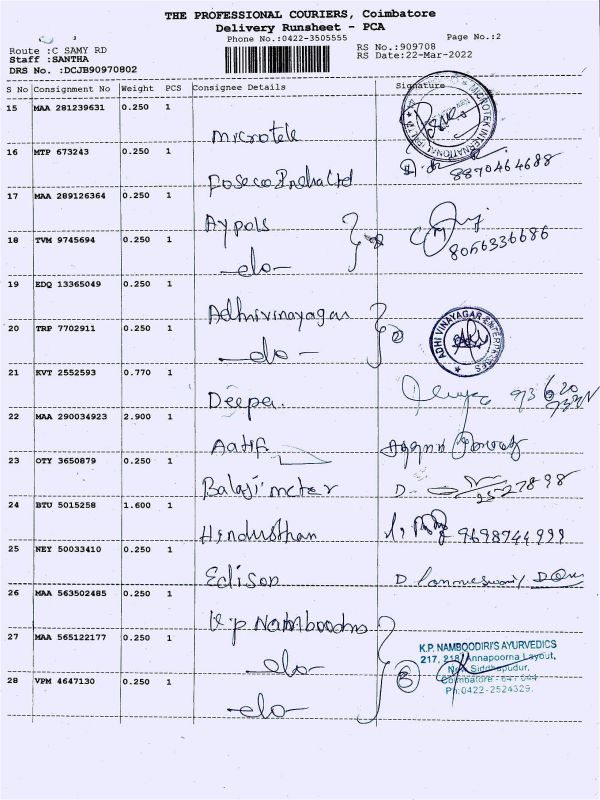 THE PROFESSIONAL COURIERS, Coimbatore
Delivery Runsheet - PCA
Phone No.:0422-3505555
Page No.:2
Route :C SAMY RD
RS No.:909708
Staff :SANTHA
RS Date:22-Mar-2022
DRS No. :DCJB90970802
S No Consignment No Weight PCS Consignee Details Signature
15 MAA 281239631 0.250 1
Microtek
MICROTEK INTERNATIONAL
16 MTP 673243 0.250 1
Foseco India Ltd
8870464688
17 MAA 289126364 0.250 1
Aypols
8056336686
18 TVM 9745694 0.250 1
-do-
19 EDQ 13365049 0.250 1
Adhivinayagar
20 TRP 7702911 0.250 1
-do-
2
ADHI VINAYAGAR ENTERPRISES
21 KVT 2552593 0.770 1
Deepa.
22 MAA 290034923 2.900 1
Aatif
23 OTY 3650879 0.250 1
Balaji meter
D.
2527898
24 BTU 5015258 1.600 1
Hindusthan
9698744999
25 NEY 50033410 0.250 1
Edison
26 MAA 563502485 0.250 1
K.p Namboodris
27 MAA 565122177 0.250 1
-do-
28 VPM 4647130 0.250 1
-do-
3
K.P. NAMBOODIRI'S AYURVEDICS
217, 218, Annapoorna Layout,
New Siddhapudur,
Coimbatore - 641 044
Ph:0422-2524329.